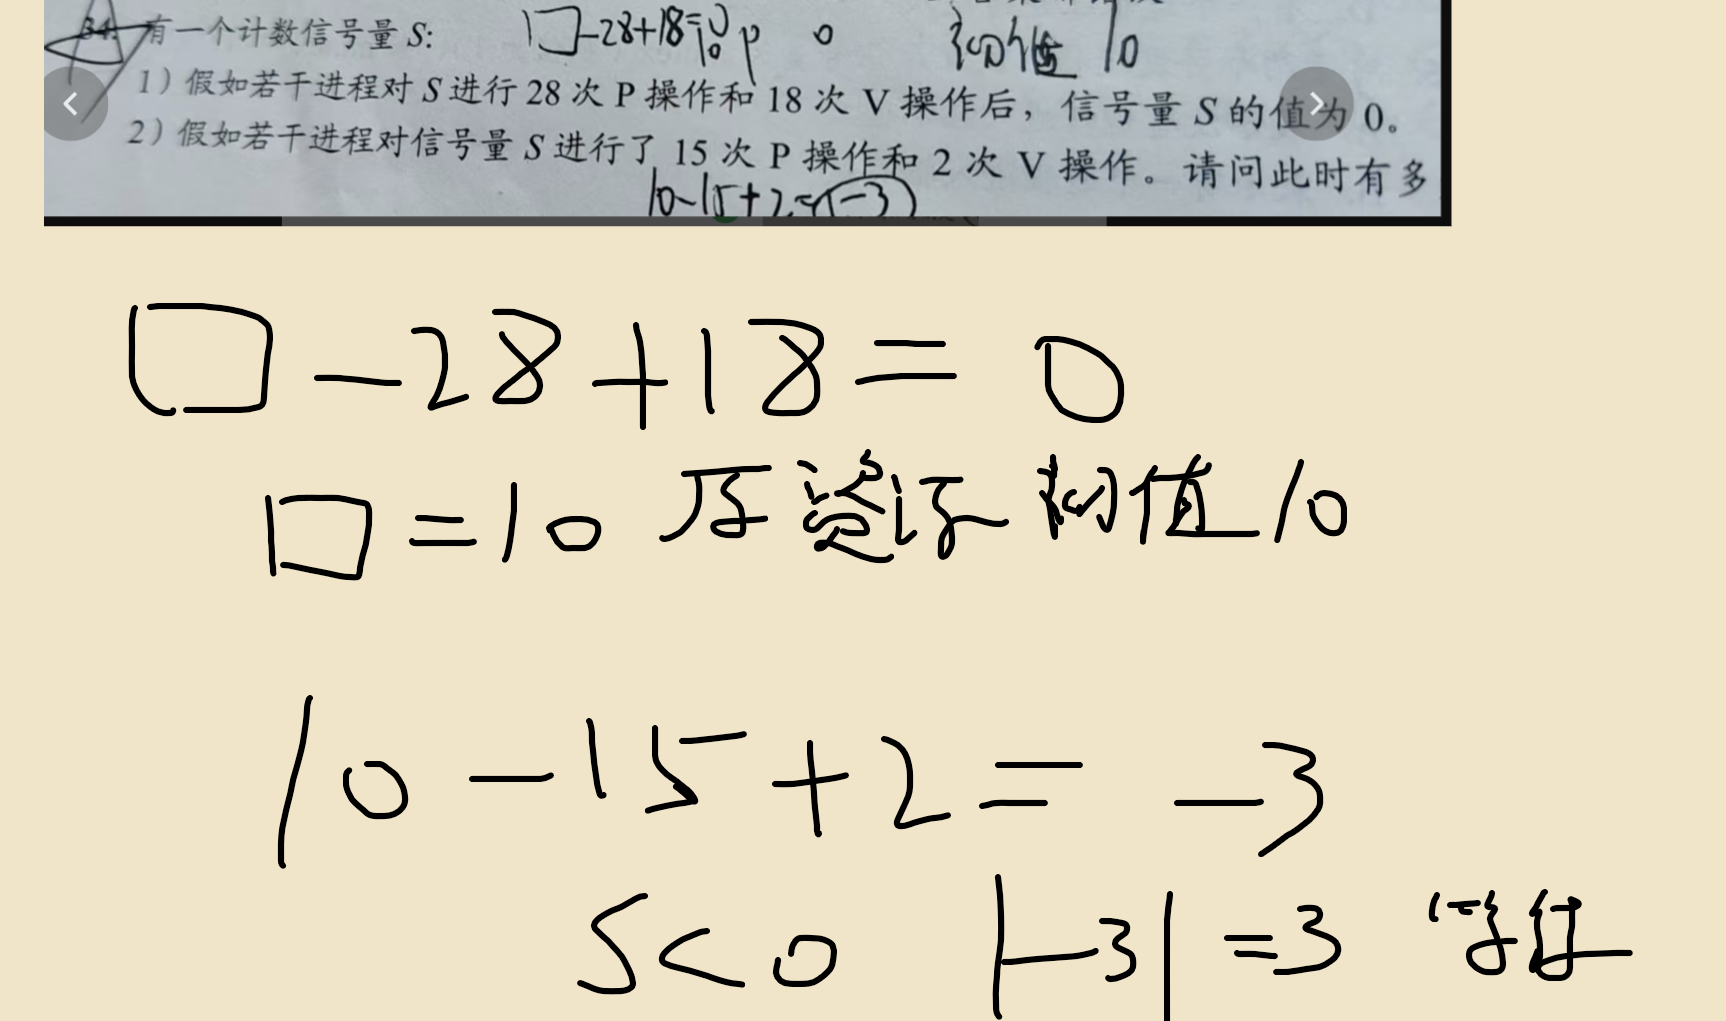 34. 有一个计数信号量 S: □-28+18=0 10 P 0 初值 10
1）假如若干进程对 S 进行 28 次 P 操作和 18 次 V 操作后，信号量 S 的值为 0。
2）假如若干进程对信号量 S 进行了 15 次 P 操作和 2 次 V 操作。请问此时有多
10-15+2=-3
□-28+18=0
□=10 资源 初值 10
10-15+2=-3
S<0 |-3|=3 等待